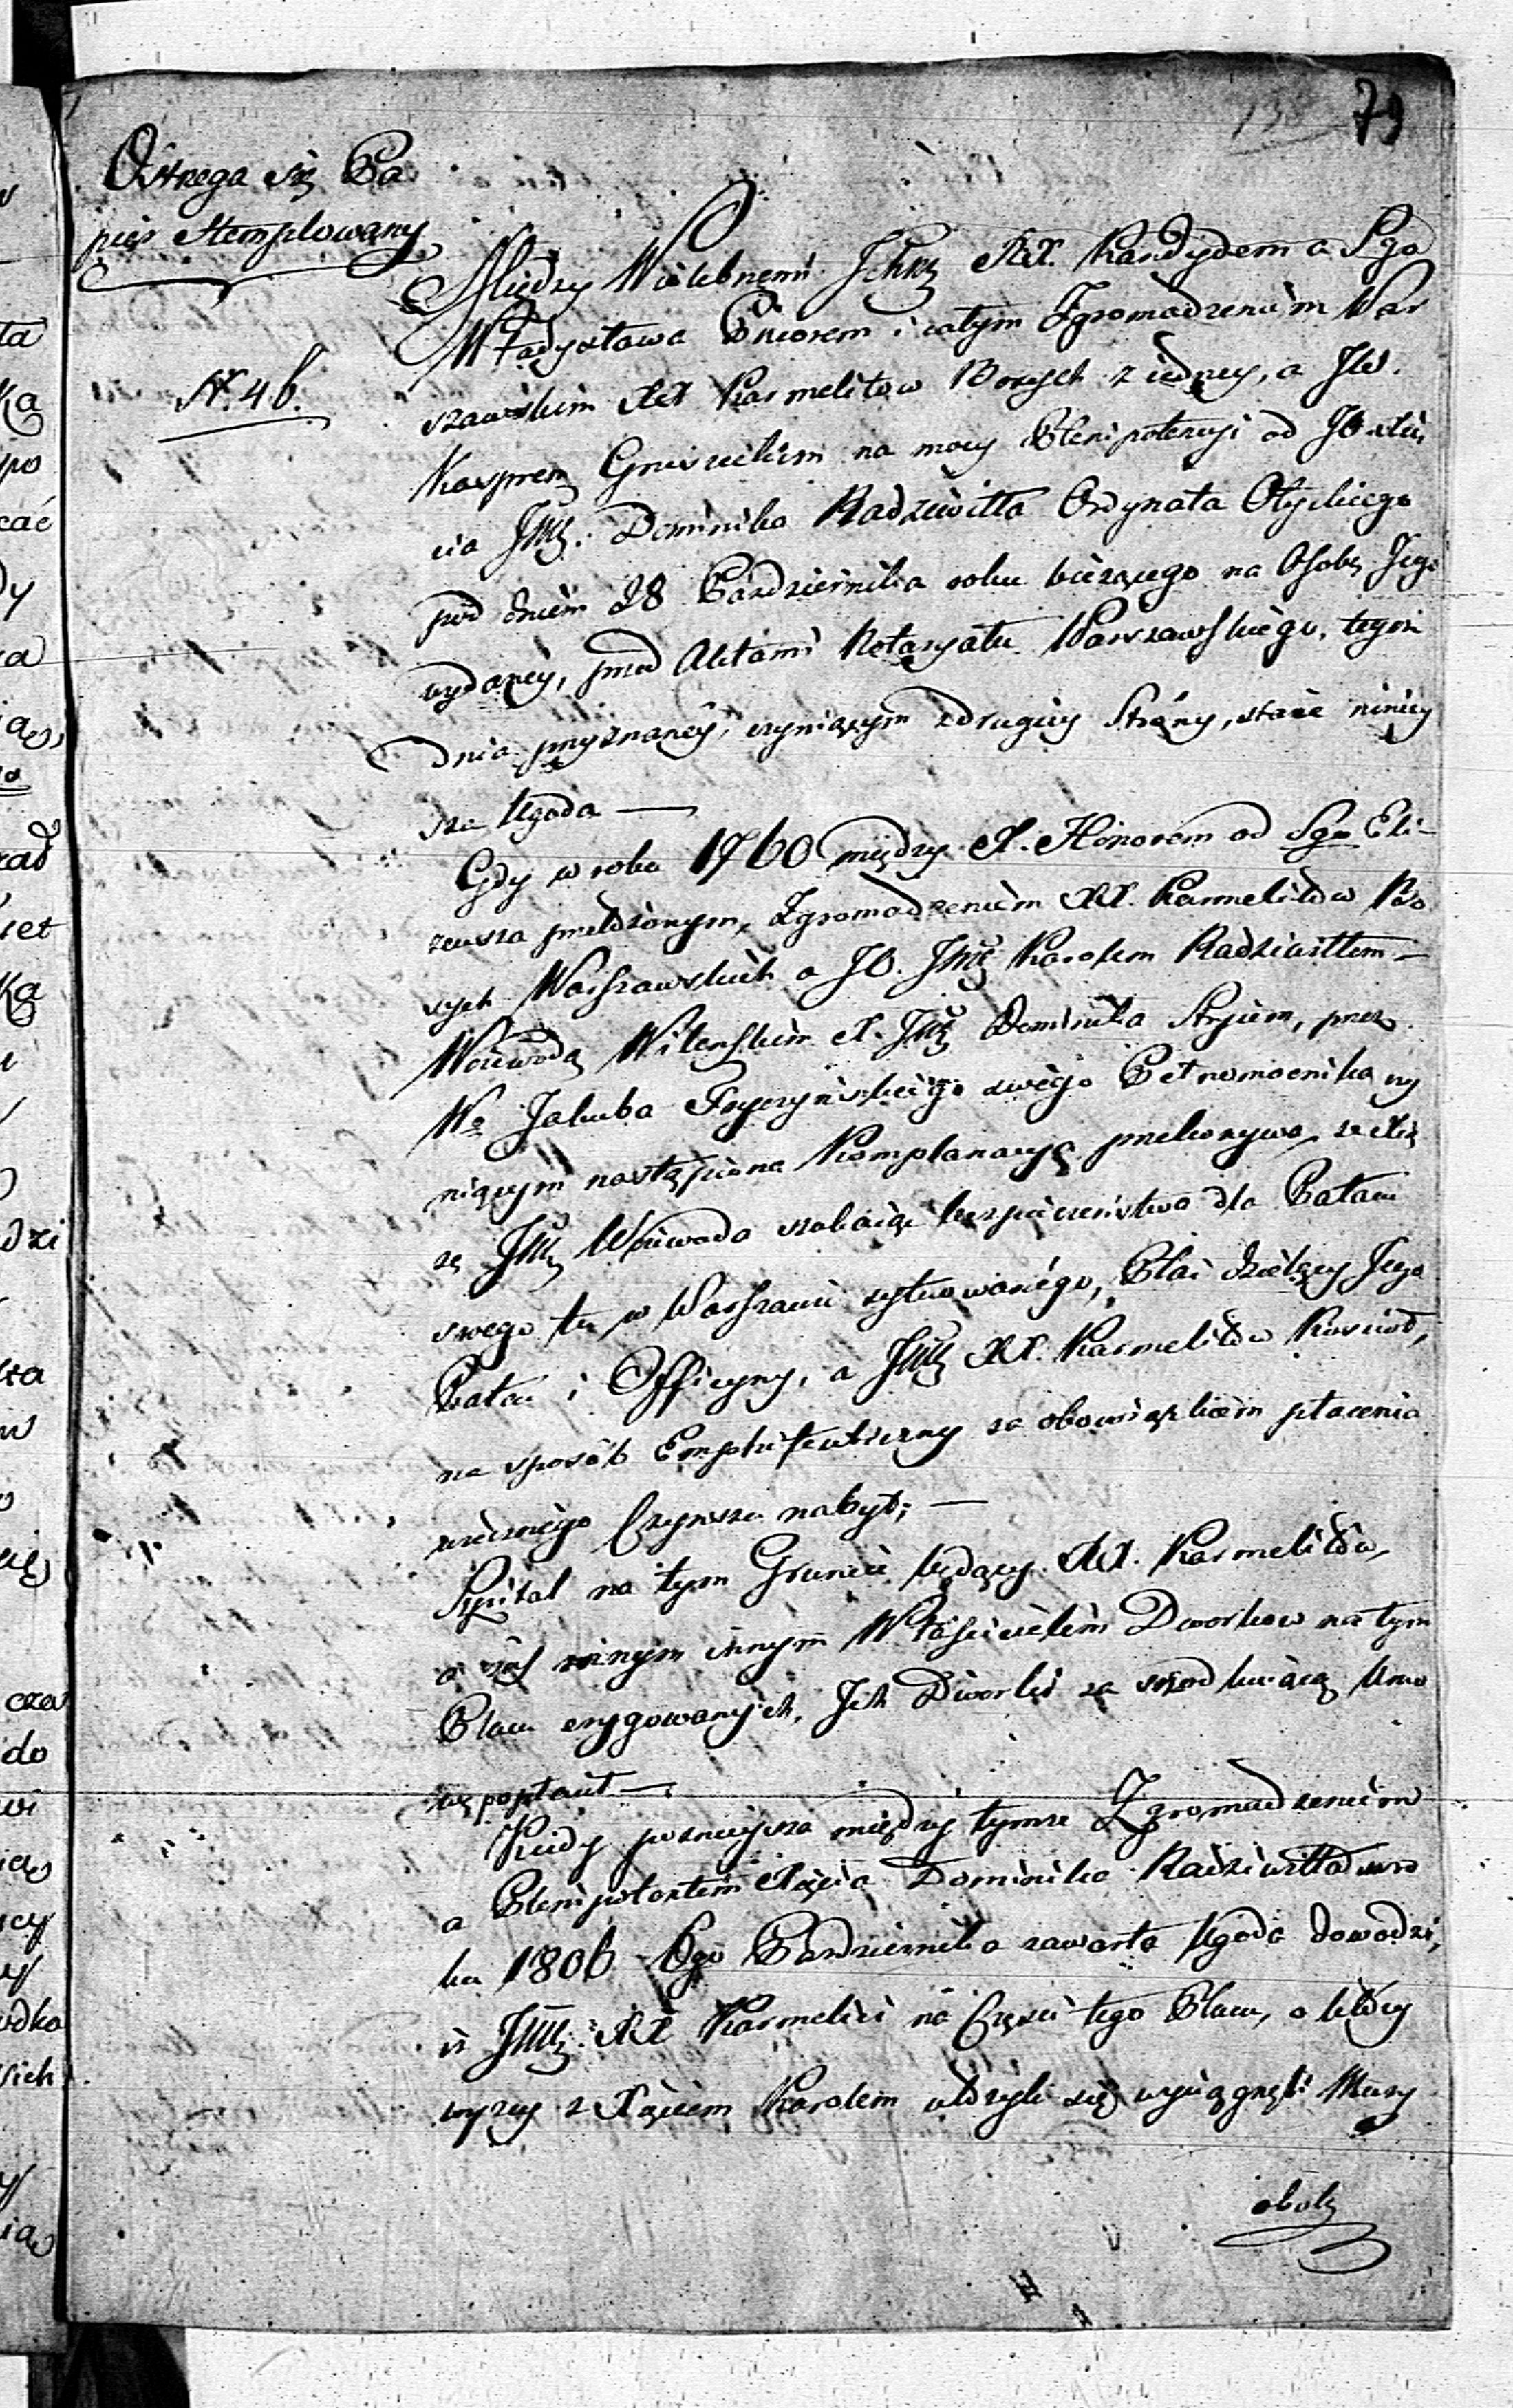 79
Ostrzega się Pa
pier Stemplowany
N. 46.
Między Wielebnemi Ichm XX. Kandydem a Sgo
Władysława Przeorem i całym Zgromadzeniem War
szawskim XX Karmelitow Bosych z iedney, a JW.
Kasprem na mocy Plenipotencyi od JO Xię
cia JM. Dominika Radziwiłła Ordynata Ołyckiego
pod dniem 28 Pazdziernika roku bieżącego na Osobę Jego
wydaney, przed Aktami Notaryatu Warszawskiego, tegoż
dnia przyznaney, czyniącym z drugiey Strony, staie niniey
sza Ugoda —
Gdy w roku 1760 między X. Honorem od Sgo Eli-
zeusza przełożonym, Zgromadzeniem XX. Karmelitow Bo
sych Warszawskich a JO. JM Karolem Radziwiłłem —
Woiewodą Wilenskim X. JM Dominika Stryiem, przez
Wo Jakuba swego Pełnomocnika czy
niącym nastąpiona Komplanacya przekonywa, że Xią
że JM Woiewoda szukaiąc bezpieczeństwa dla Pałacu
swego tu w Warszawie sytuowanego, Plac dzielący Jego
Pałac i Officyny, a JM XX. Karmelitow Kosciół,
na sposób Emphiteutyczny za obowiązkiem płacenia
wiecznego Czynszu nabył; —
Szpital na tym Gruncie będący XX. Karmelitow,
a zaś rożnym innym Włascicielom Dworkow na tym
Placu erygowanych, Jch Dworki za Umo
wę popłacił —
Kiedy poznieysza między tymże Zgromadzeniem
a Plenipotentem Xięcia Dominika Radziwiłła w ro
ku 1806 6go Pazdziernika zawarta Ugoda dowodzi,
iż JM. XX Karmelici na Częsci tego Placu, o który
wyzey z Xięciem Karolem ułożyli się wyciągnęli Mury